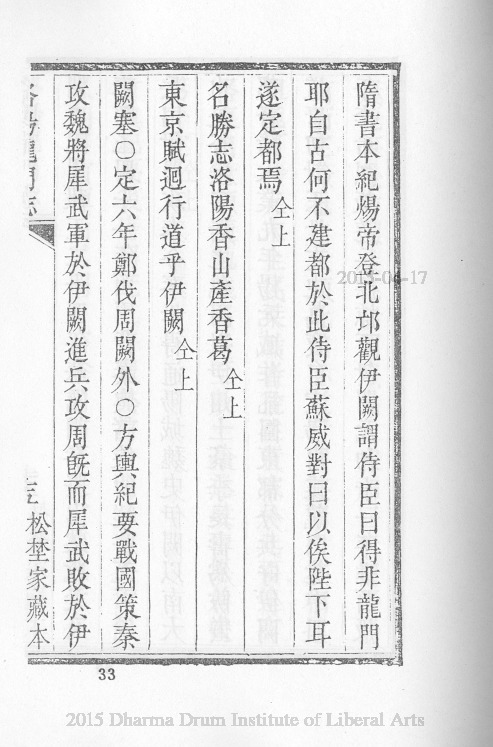 隋書本紀煬帝登北邙觀伊闕謂侍臣曰得非龍門
耶自古何不建都於此侍臣蘇威對曰以俟陛下耳
遂定都焉仝上
名勝志洛陽香山產香葛仝上
東京賦迴行道乎伊闕仝上
闕塞〇定六年鄭伐周闕外〇方輿紀要戰國策秦
攻魏將犀武軍於伊闕進兵攻周旣而犀武敗於伊
洛陽龍門志
松埜家藏本
33
2015-04-17
2015 Dharma Drum Institute of Liberal Arts